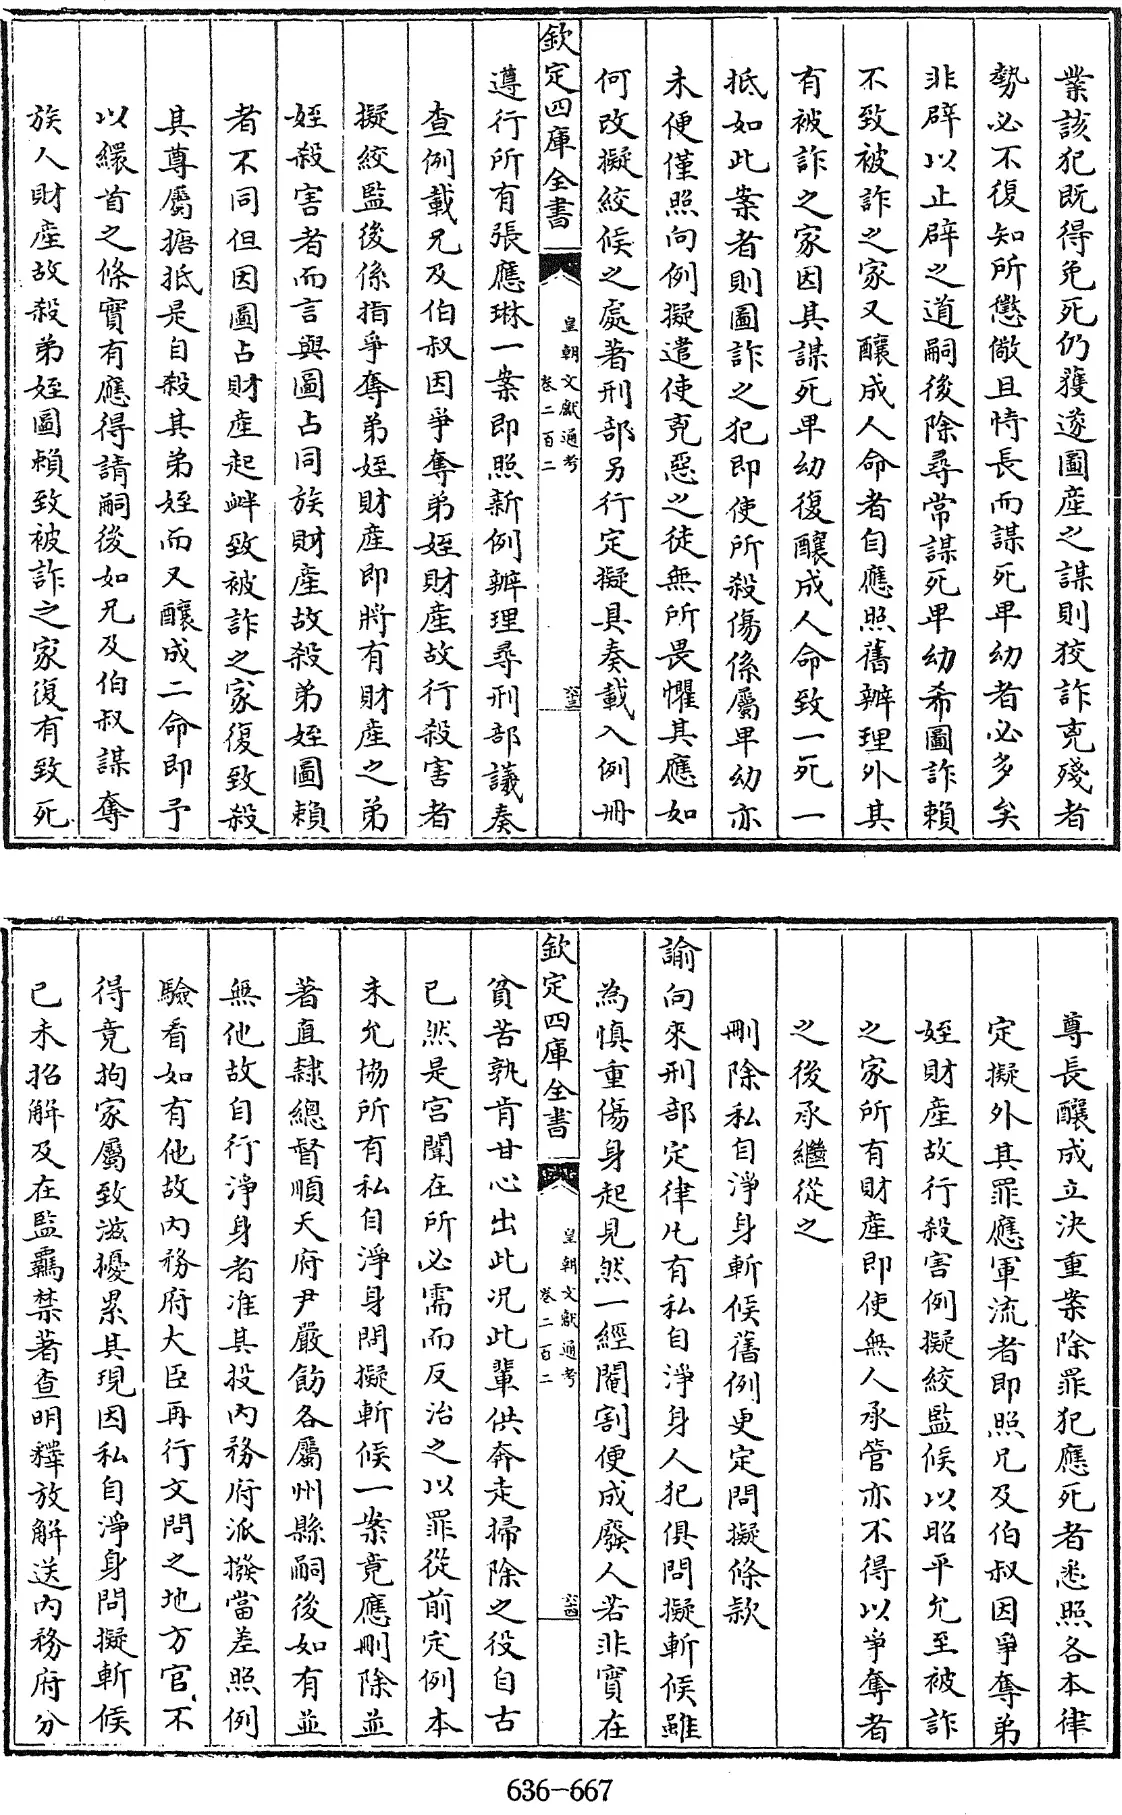 業該犯既得免死仍獲遂圖產之謀則狡詐兇殘者
勢必不復知所懲儆且恃長而謀死卑幼者必多矣
非辟以止辟之道嗣後除尋常謀死卑幼希圖詐賴
不致被詐之家又釀成人命者自應照舊辦理外其
有被詐之家因其謀死卑幼復釀成人命致一死一
抵如此案者則圖詐之犯即使所殺傷係屬卑幼亦
未便僅照向例擬遣使兇惡之徒無所畏懼其應如
何改擬絞候之處著刑部另行定擬具奏載入例冊
欽定四庫全書
皇朝文獻通考
卷二百二
遵行所有張應琳一案即照新例辦理尋刑部議奏
查例載兄及伯叔因爭奪弟姪財產故行殺害者
擬絞監後係指爭奪弟姪財產即將有財產之弟
姪殺害者而言與圖占同族財產故殺弟姪圖賴
者不同但因圖占財產起衅致被詐之家復致殺
其尊屬搪抵是自殺其弟姪而又釀成二命即予
以繯首之條實有應得請嗣後如兄及伯叔謀奪
族人財產故殺弟姪圖賴致被詐之家復有致死
尊長釀成立決重案除罪犯應死者悉照各本律
定擬外其罪應軍流者即照兄及伯叔因爭奪弟
姪財產故行殺害例擬絞監候以昭平允至被詐
之家所有財產即使無人承管亦不得以爭奪者
之後承繼從之
刪除私自淨身斬候舊例更定問擬條款
諭向來刑部定律凡有私自淨身人犯俱問擬斬候雖
為慎重傷身起見然一經閹割便成廢人若非實在
欽定四庫全書
皇朝文獻通考
卷二百二
貧苦孰肯甘心出此况此輩供奔走掃除之役自古
已然是宮闈在所必需而反治之以罪從前定例本
未允協所有私自淨身問擬斬候一案竟應刪除並
著直隸總督順天府尹嚴飭各屬州縣嗣後如有並
無他故自行淨身者准其投內務府派撥當差照例
驗看如有他故內務府大臣再行文問之地方官不
得竟拘家屬致滋擾累其現因私自淨身問擬斬候
已未招解及在監羈禁著查明釋放解送內務府分
636-667